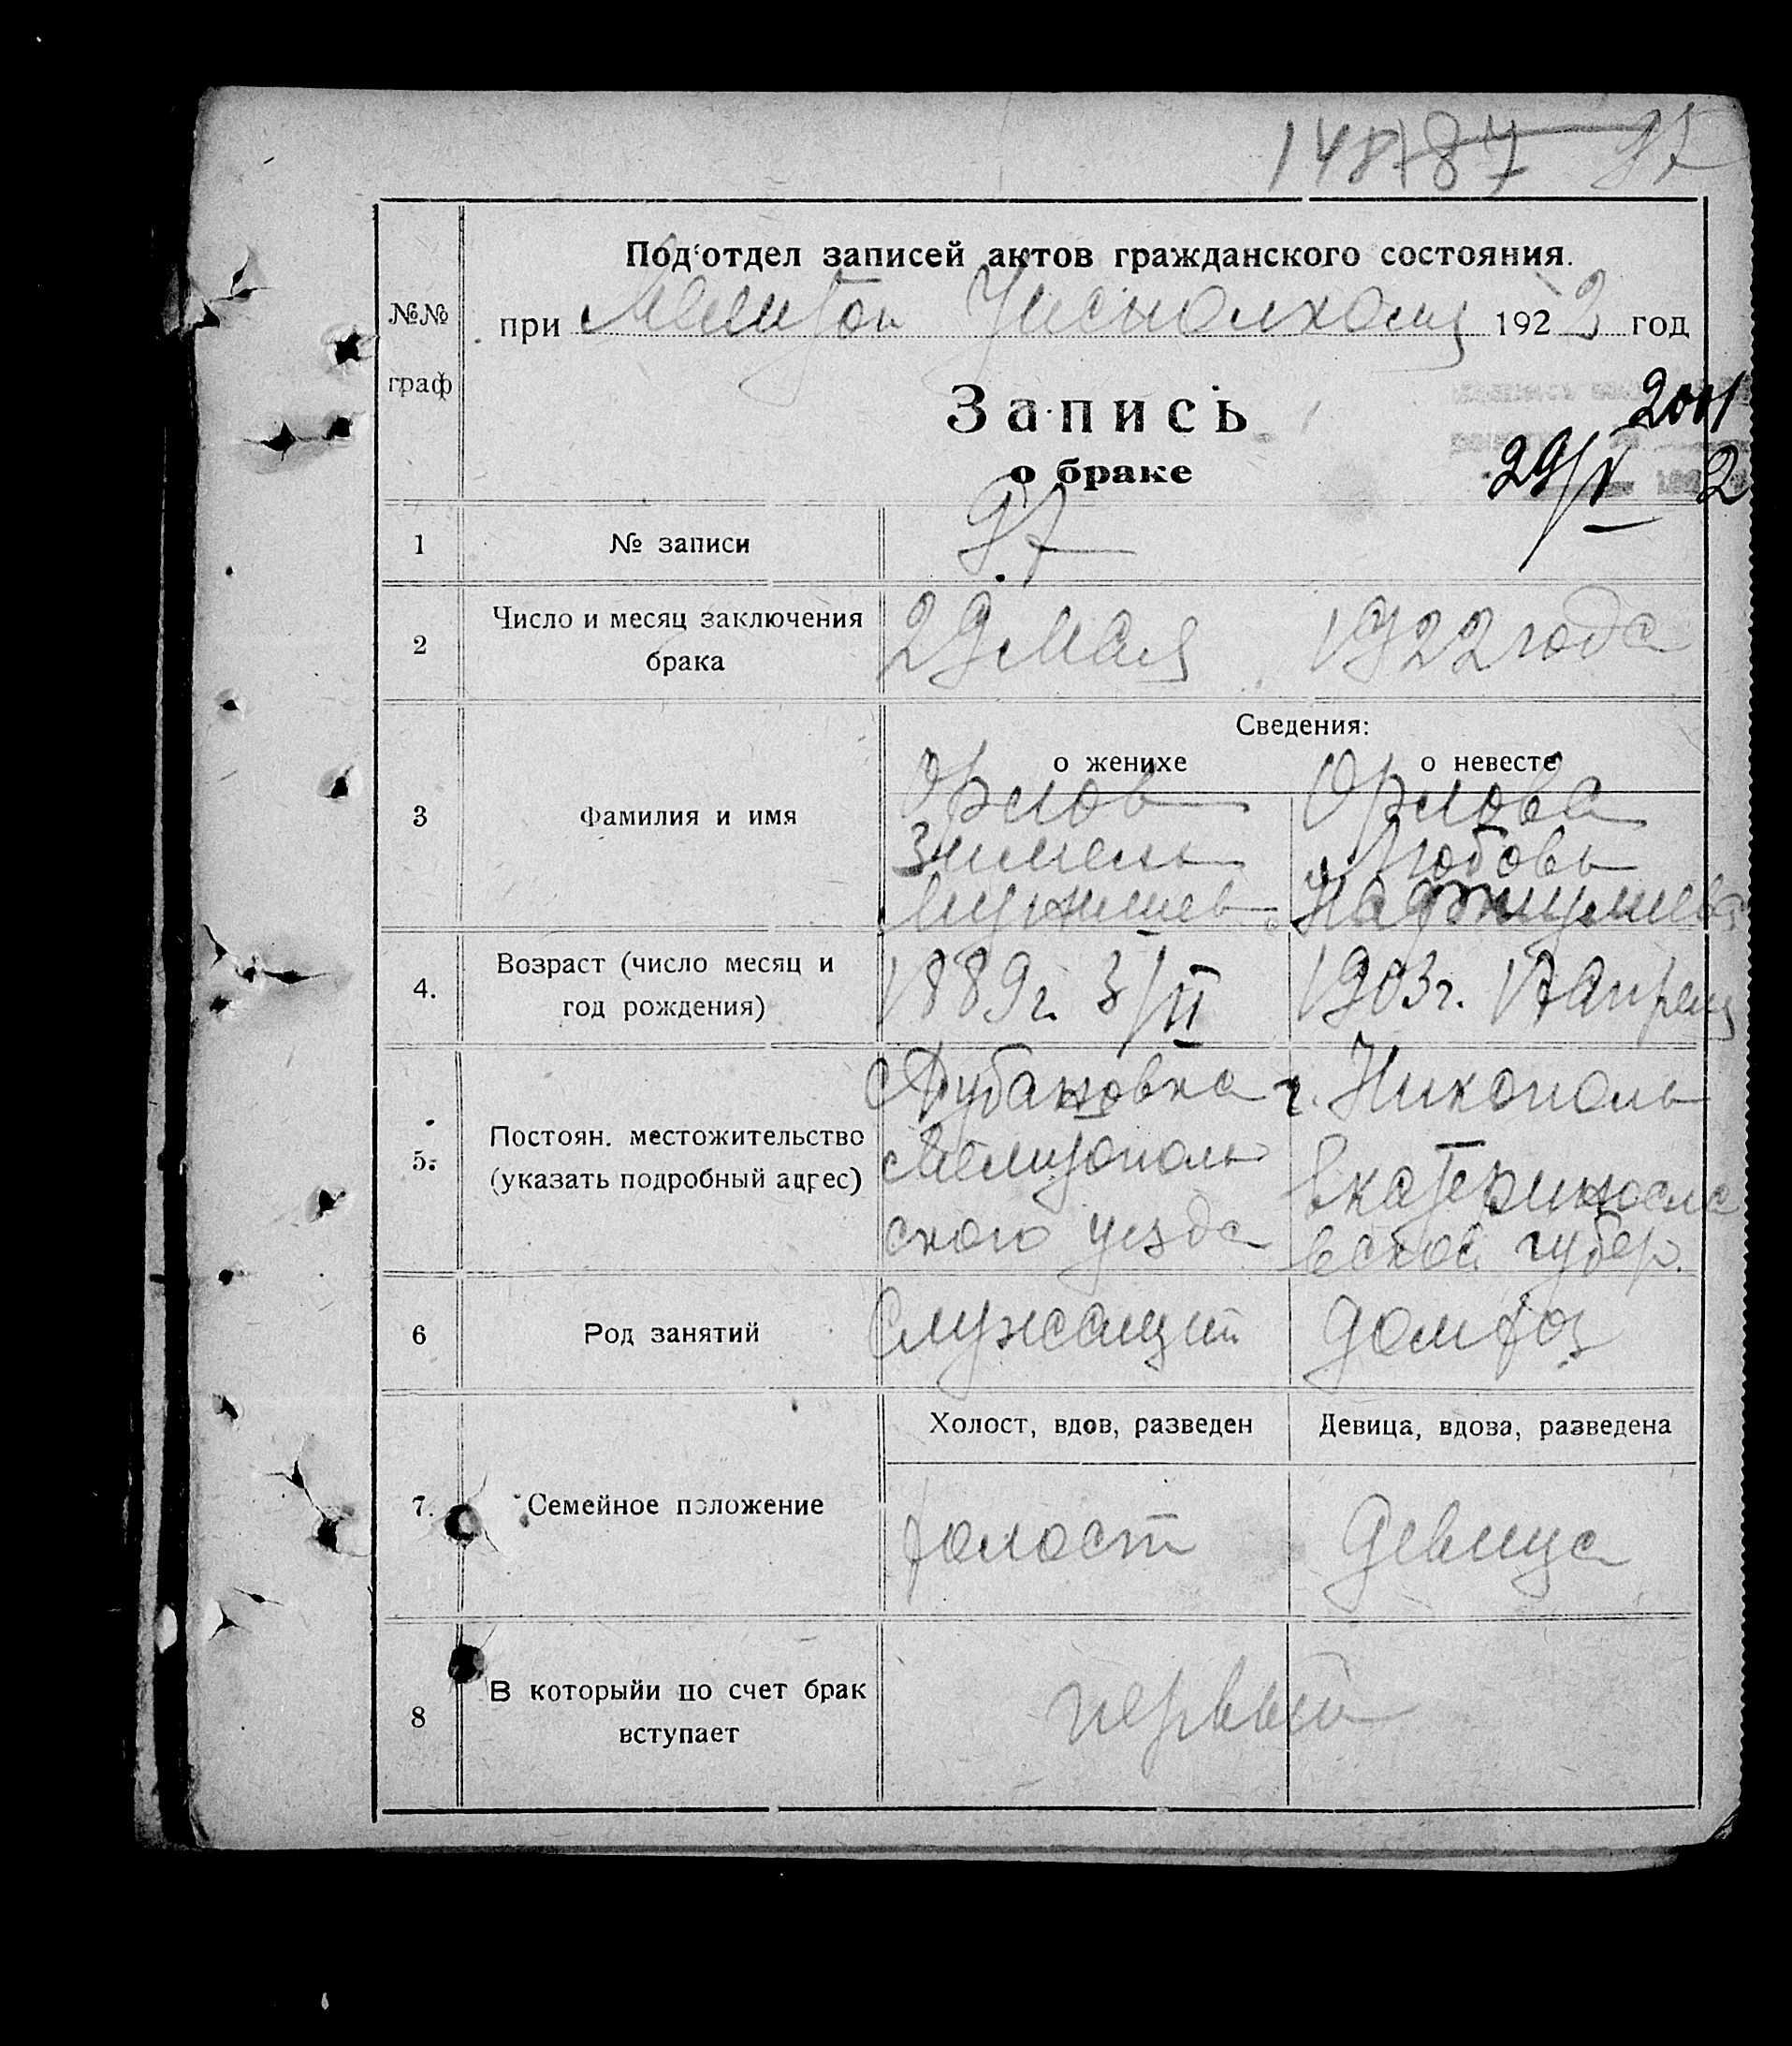 148 87 97
Под отдел записей актов гражданского состояния.
№№
граф
при Мелитоп Уисполкому 1922 год
Запись
о браке
29/V 2
1 № записи 97
2 Число и месяц заключения брака 29 Мая 1922 года
Сведения:
о женихе о невесте
3 Фамилия и имя
Орлов Орлова
Зимель Любовь
4. Возраст (число месяц и год рождения) 1889 г. 3/II 1903 г. 17 Апреля
5. Постоян. местожительство (указать подробный адрес)
г. Никополь
Мелитополь Екатериносла
ского уезда вской губер.
6 Род занятий Служащий домхоз
Холост, вдов, разведен Девица, вдова, разведена
7. Семейное положение холост девица
8 В которыйи по счет брак вступает первый